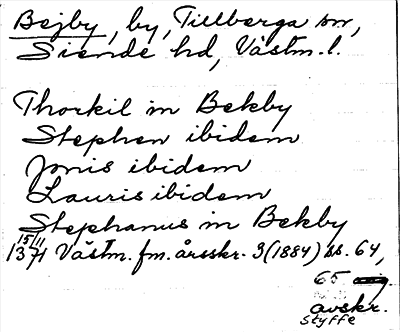 Bejby, by, Tillberga sn,
Siende hd, Västm. l.
Thorkil in Bekby
Stephen ibidem
Jonis ibidem
Lauris ibidem
Stephanus in Bekby
15/11
1371 Västm. fm. årsskr. 3 (1884) ss. 64,
65
avskr.
Styffe